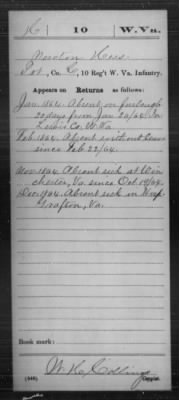 K | 10 | W. Va.
Hess
Pvt., Co. C, 10 Reg't W. Va. Infantry.
Appears on Returns as follows:
Jan. 1864. Absent on furlough
20 days from Jan 20/64. In
Lewis Co. W. Va.
Feb. 1864. Absent without leave
since Feb 22/64.
Nov. 1864. Absent sick at Win
chester, Va. since Oct 19/64.
Dec. 1864. Absent sick in Hosp.
Grafton, Va.
Book mark:
W. K. Collins
(546) Copyist.